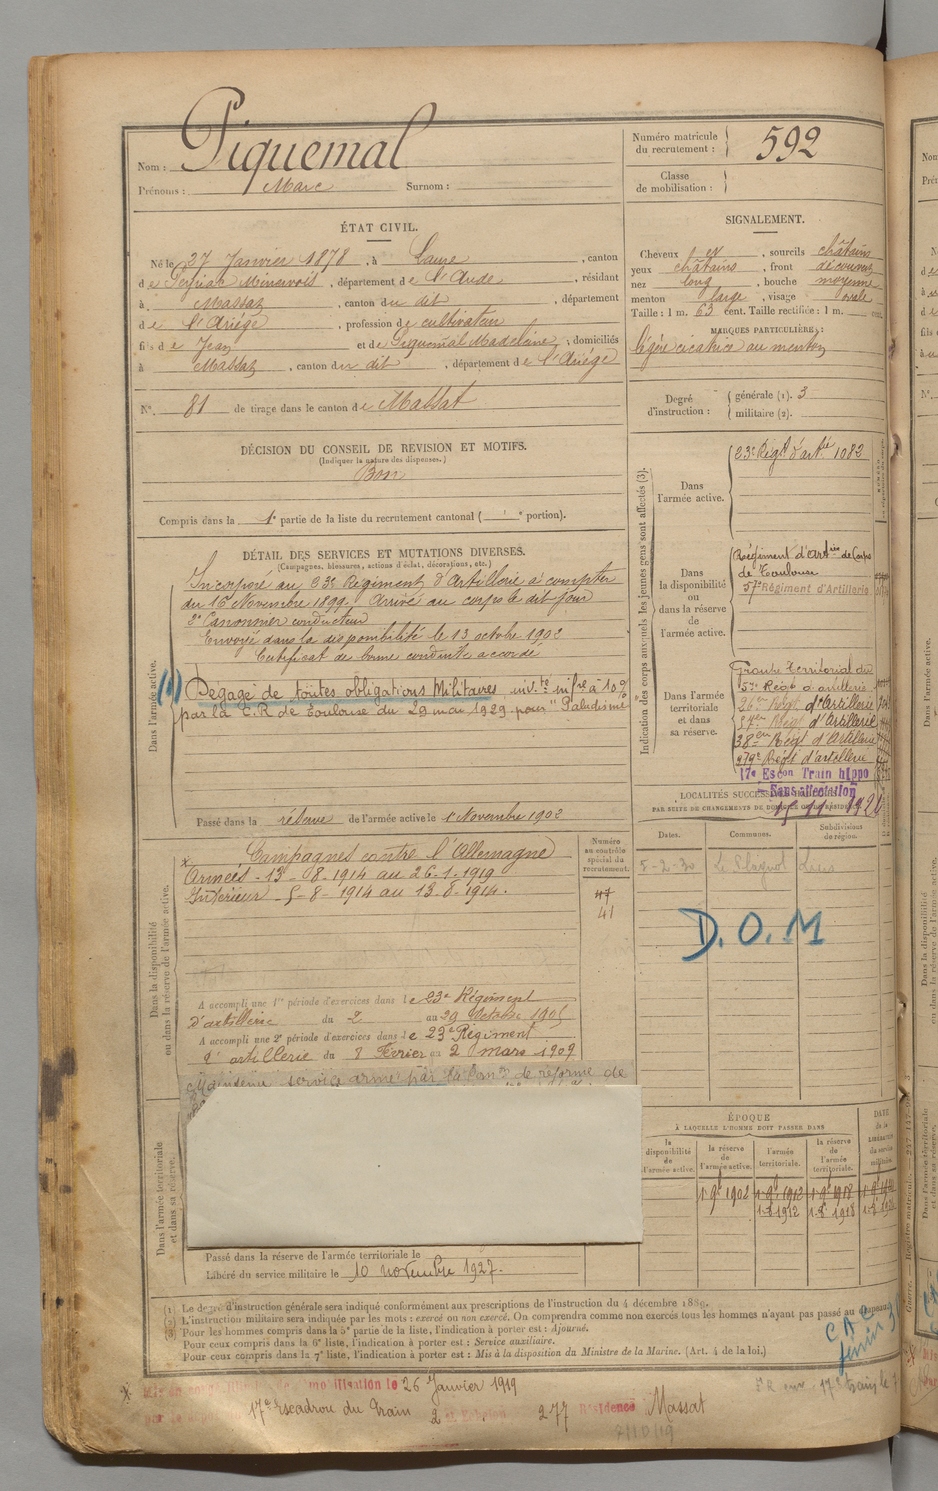 Nom : Piquemal
Prénoms : Marc Surnom :
Numéro matricule du recrutement : 592
Classe de mobilisation :
ÉTAT CIVIL.
Né le 27 Janvier 1878, à Laure, canton
de Peyriac Minervois, département de l'Aude, résidant
à Massat, canton du dit, département
de l'Ariége, profession de cultivateur
fils de Jean et de Piquemal Madelaine, domiciliés
à Massat, canton du dit, département de l'Ariége
N° 81 de tirage dans le canton de Massat
SIGNALEMENT.
Cheveux et, sourcils châtains
yeux châtains, front découvert
nez long, bouche moyenne
menton large, visage ovale
Taille : 1 m. 63 cent. Taille rectifiée : 1 m. cent.
MARQUES PARTICULIÈRES :
légère cicatrice au menton
Degré d'instruction : générale (1). 3
militaire (2).
DÉCISION DU CONSEIL DE REVISION ET MOTIFS.
(Indiquer la nature des dispenses.)
Bon
Compris dans la 1e partie de la liste du recrutement cantonal ( e portion).
DÉTAIL DES SERVICES ET MUTATIONS DIVERSES.
(Campagnes, blessures, actions d'éclat, décorations, etc.)
Dans l'armée active.
Incorporé au 23e Régiment d'Artillerie à compter
du 16 Novembre 1899. Arrivé au corps le dit jour
2e Canonnier conducteur
Envoyé dans la disponibilité le 13 octobre 1902
Certificat de bonne conduite accordé
(1) Dégagé de toutes obligations Militaires inv.té infre à 10 %
par la C.R de Toulouse du 29 mai 1929 pour "Paludisme
Passé dans la réserve de l'armée active le 1 Novembre 1902
Indication des corps auxquels les jeunes gens sont affectés (3).
Dans l'armée active.
23e Régt d'artie 1082
Dans la disponibilité ou dans la réserve de l'armée active.
Régiment d'Artrie de Corps
de Toulouse
57e Régiment d'Artillerie
Dans l'armée territoriale et dans sa réserve.
Groupe territorial du
57e Régt d'artillerie
26e Régt d'Artillerie
57e Régt d'Artillerie
38e Régt d'Artillerie
279e Régt d'artillerie
17e Escon Train hippo
Sans affectation
15 11 192
LOCALITÉS SUCCESSIVES
PAR SUITE DE CHANGEMENTS DE DOMICILE OU DE RÉSIDENCE
Dates. Communes. Subdivisions de région.
5-2-30 Le Plagnol
D.O.M
Dans la disponibilité ou dans la réserve de l'armée active.
Numéro au contrôle spécial du recrutement.
47
41
* Campagnes contre l'Allemagne
Armées - 13 - 8 - 1914 au 26-1-1919
Intérieur - 5 - 8 - 1914 au 13-8-1914.
A accompli une 1re période d'exercices dans le 23e Régiment
d'artillerie du 2 au 29 Octobre 1905
A accompli une 2e période d'exercices dans le 23e Régiment
d'artillerie du 8 Février au 2 mars 1909
Maintenu service armé par la Comon de réforme de
Dans l'armée territoriale et dans sa réserve.
ÉPOQUE
À LAQUELLE L'HOMME DOIT PASSER DANS
la disponibilité de l'armée active.
la réserve de l'armée active.
l'armée territoriale.
la réserve de l'armée territoriale.
DATE de la LIBÉRATION du service militaire.
1-9e 1902 1-9e 1912 1-9e 1918
1-8-1912 1-8-1918
Passé dans la réserve de l'armée territoriale le
Libéré du service militaire le 10 novembre 1927.
(1) Le degré d'instruction générale sera indiqué conformément aux prescriptions de l'instruction du 4 décembre 1889.
(2) L'instruction militaire sera indiquée par les mots : exercé ou non exercé. On comprendra comme non exercés tous les hommes n'ayant pas passé au drapeau.
(3) Pour les hommes compris dans la 5e partie de la liste, l'indication à porter est : Ajourné.
Pour ceux compris dans la 6e liste, l'indication à porter est : Service auxiliaire.
Pour ceux compris dans la 7e liste, l'indication à porter est : Mis à la disposition du Ministre de la Marine. (Art. 4 de la loi.)
* Mis en congé de démobilisation le 26 Janvier 1919
par le 17e Escadron du Train 2e Echelon 277 Résidence Massat
7/10/19